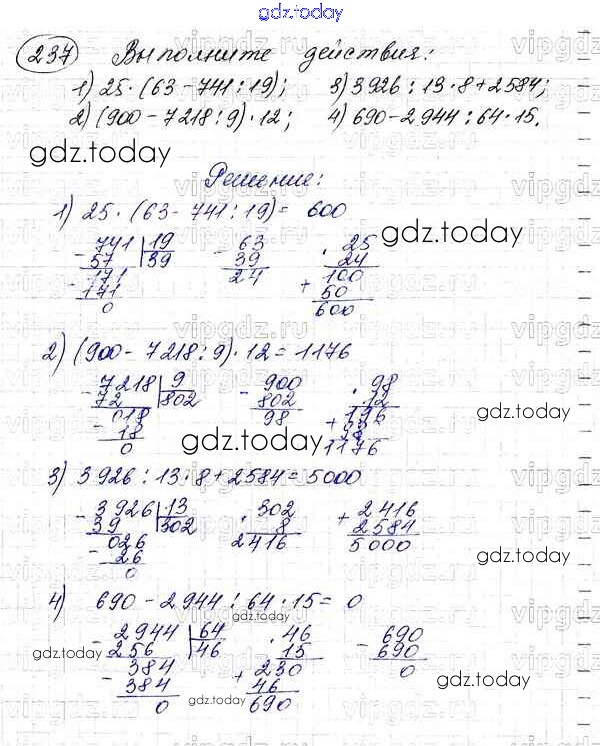 gdz.today
237 Выполните действия:
1) 25·(63-741:19); 3) 3926:13·8+2584;
2) (900-7218:9)·12; 4) 690-2944:64·15.
gdz.today
Решение:
1) 25·(63-741:19)= 600
741 19 63 25
- 57 39 - 39 · 24
171 24 100
- 171 + 50
0 600
gdz.today
2) (900-7218:9)·12=1176
- 7218 9 - 900 · 98
72 802 802 12
018 98 196
- 18 + 98
0 1176
gdz.today
gdz.today
3) 3926:13·8+2584=5000
- 3926 13 · 302 + 2416
39 302 8 2584
026 2416 5000
- 26
0
gdz.today
4) 690-2944:64·15= 0
gdz.today
- 2944 64 · 46 - 690
256 46 15 690
384 230 0
- 384 + 46
0 690
gdz.today
gdz.today
vipgdz.ru